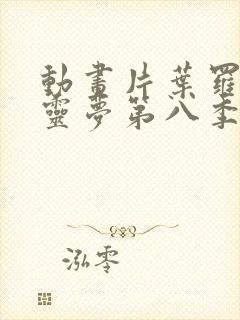 動畫片葉羅
靈夢第八季
泓零